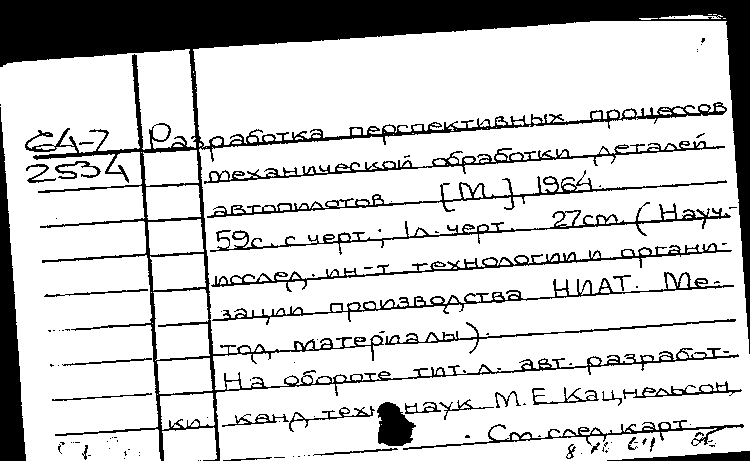 64-7
2534
Разработка перспективных процессов
механической обработки деталей
автопилотов. [М.], 1964.
59с. с черт.; 1л. черт. 27см. (Науч.-
исслед. ин-т технологии и органи-
зации производства НИАТ. Ме-
тод. материалы).
На обороте тит. л. авт. разработ-
ки: канд. техн. наук М.Е. Кацнельсон,
. См. след. карт.
8 XI 64